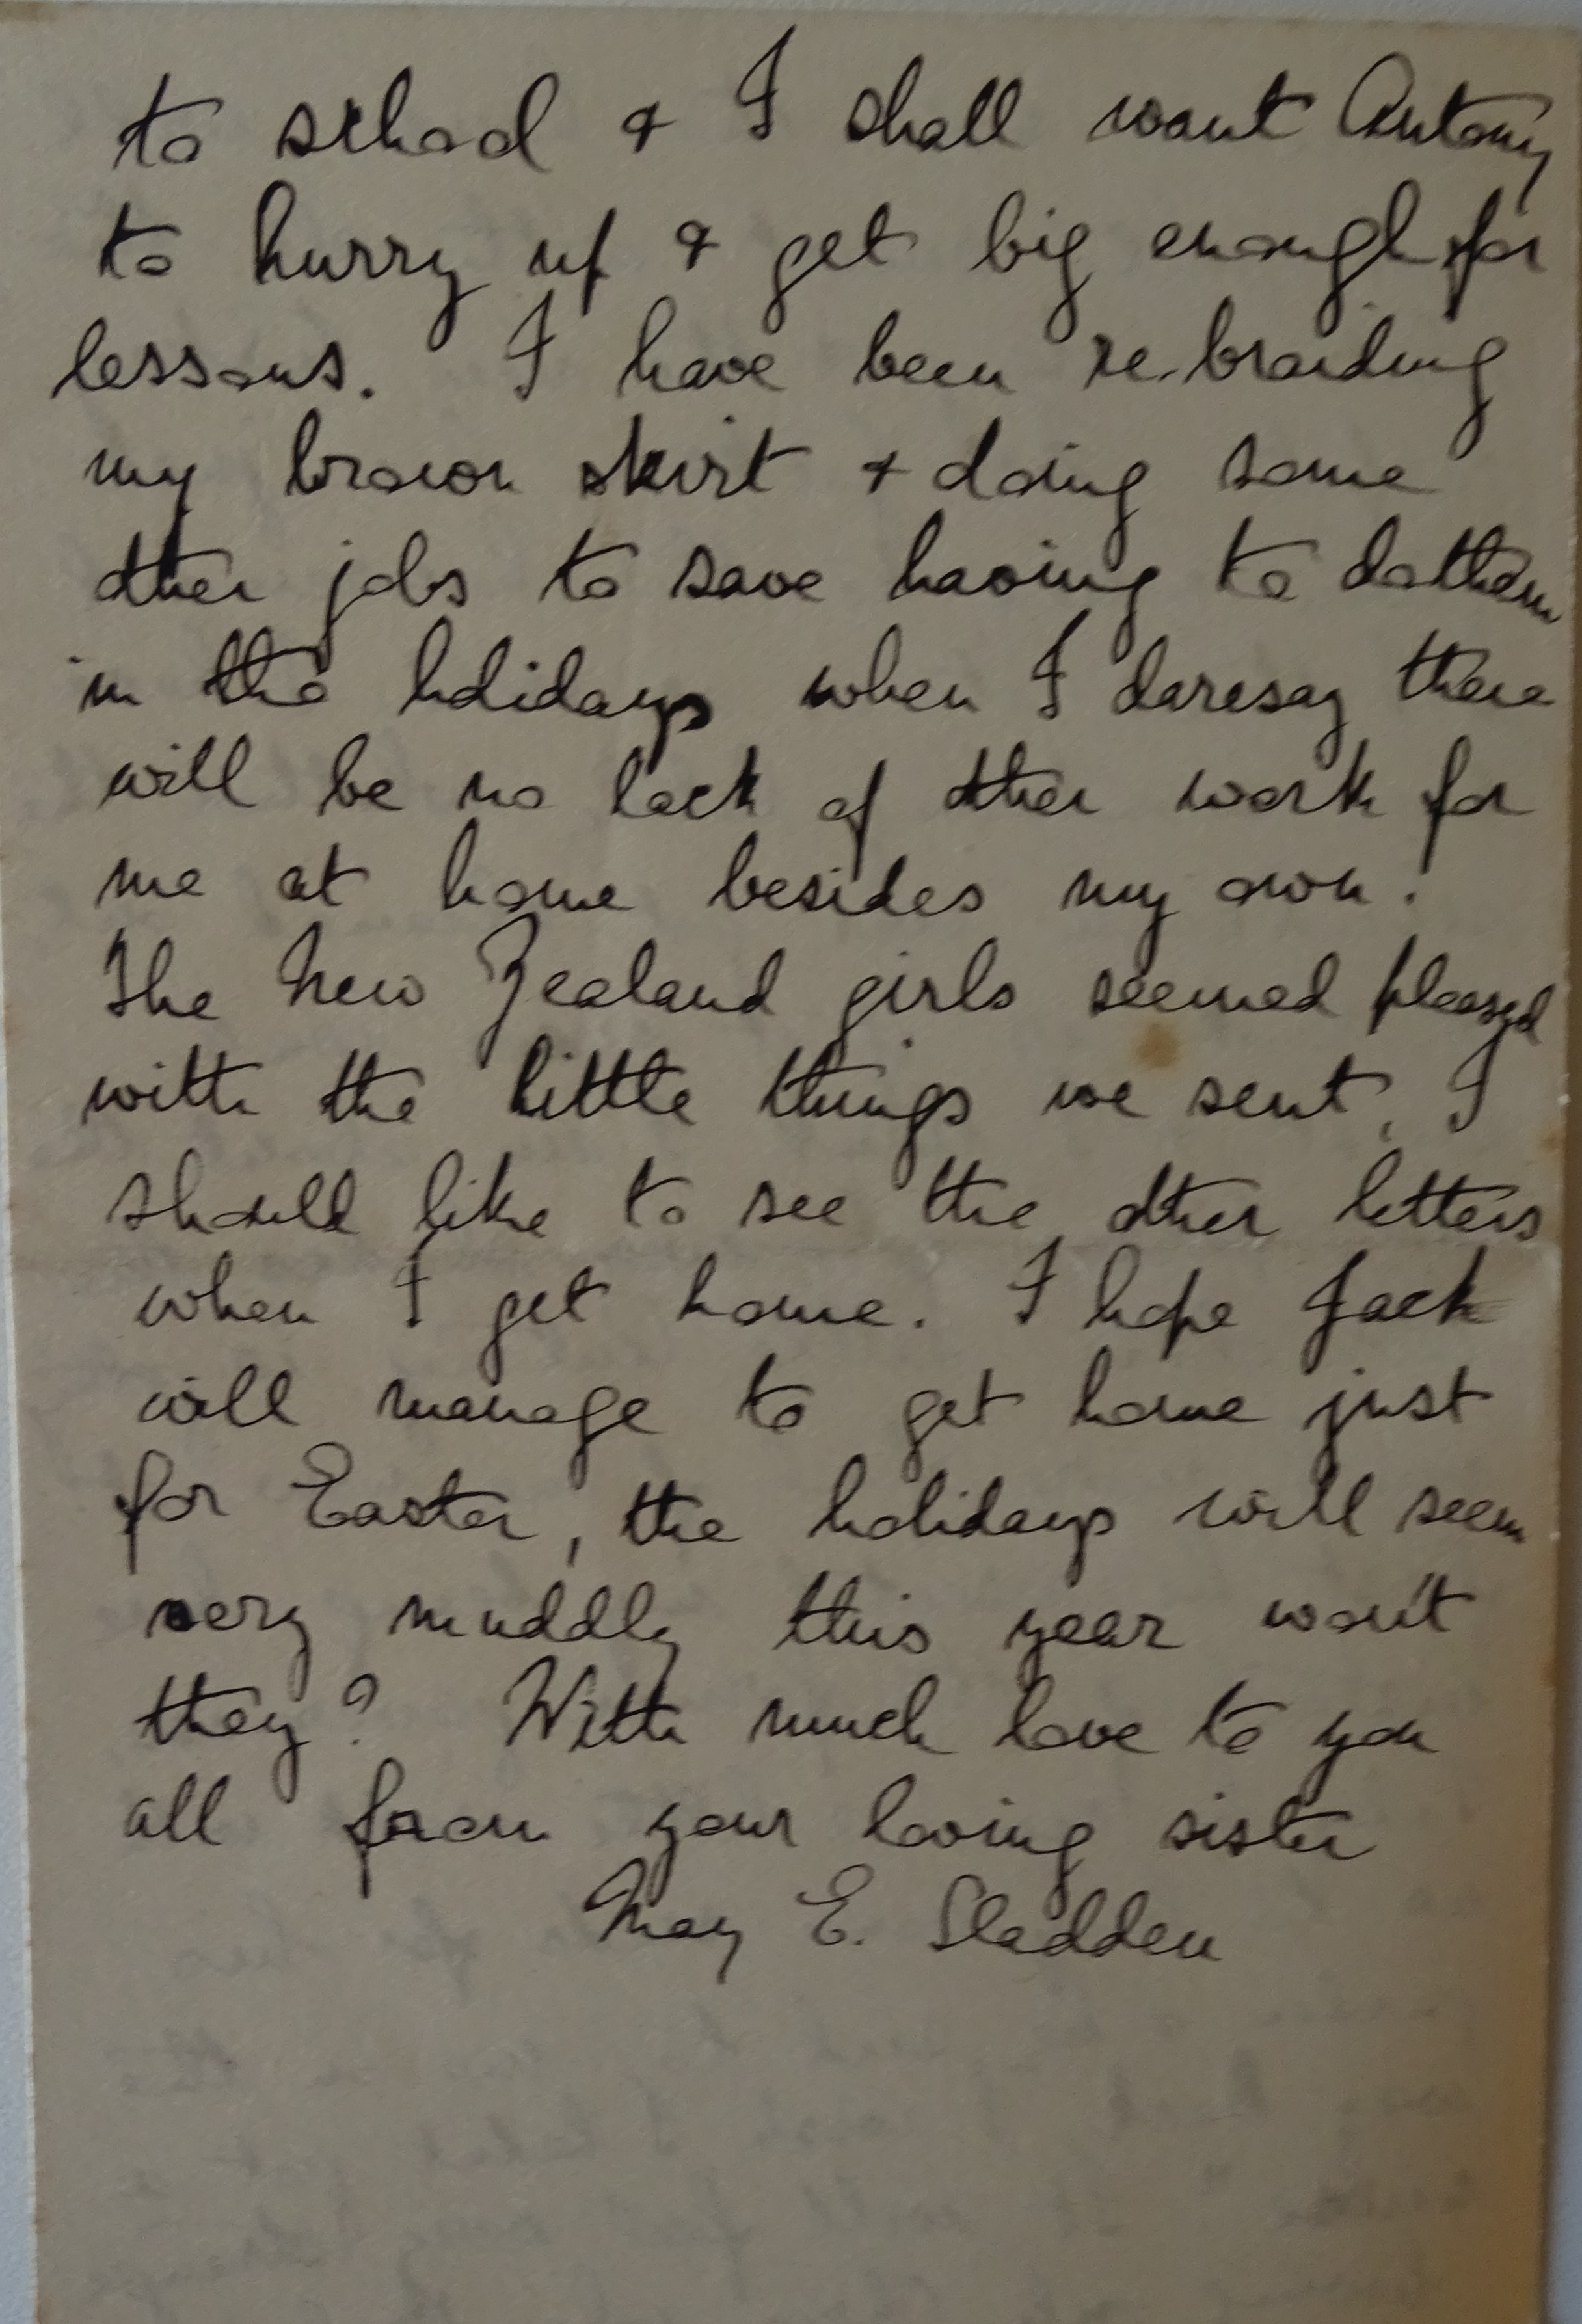 to school & I shall want Antony
to hurry up & get big enough for
lessons. I have been re-braiding
my brown skirt & doing some
other jobs to save having to do them
in the holidays when I daresay there
will be no lack of other work for
me at home besides my own.
The New Zealand girls seemed pleased
with the little things we sent, I
should like to see the other letters
when I get home. I hope Jack
will manage to get home just
for Easter, the holidays will seem
very muddly this year won't
they? With much love to you
all from your loving sister
May E. Sladden